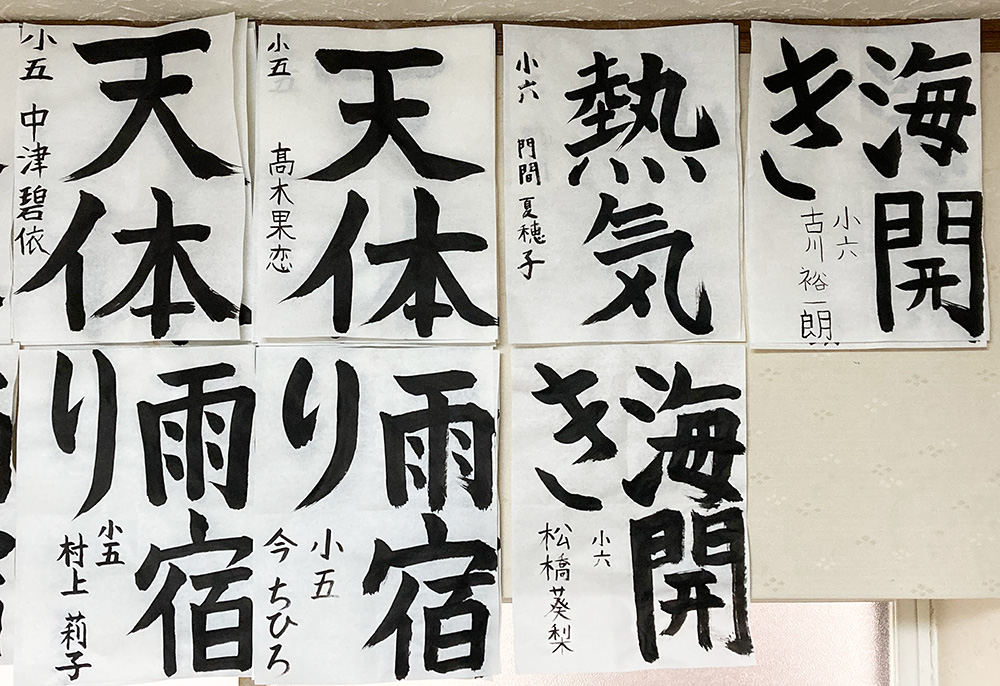 海開
き
小六
古川裕一朗
熱気
小六 門間夏穂子
天体
小五
髙木果恋
天体
小五 中津碧依
海開
き
小六
松橋葵梨
雨宿
り
小五
今ちひろ
雨宿
り
小五
村上莉子